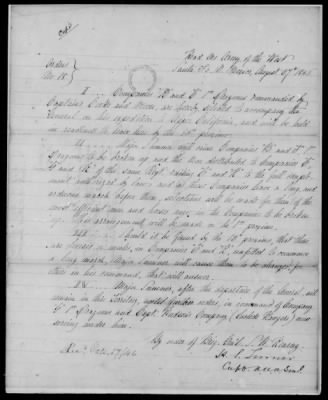 Head Qrs Army of the West
Santa Fe, N. Mexico, August 27th 1846
Orders
No. 18
I ... Companies "C" and "K" 1st Dragoons commanded by
Captains Cooke and Moore, are hereby selected to accompany the
General in his expedition to Upper California and will be held
in readiness to leave here by the 15th proximo.
II ... Major Sumner will cause Companies
Dragoons to be broken up and the men distributed to Companies
of the same Regt. raising to the full complement
authorized by law; and as these Companies have a long and
arduous march before them, selections will be made for them of the
most efficient men and horses now in the Companies to be broken
up. This arrangement will be made on the 1st proximo.
III ... Should it be found by the 10th proximo, that there
are horses or mules, in Companies "C" and "K", unfitted to commence
a long march, Major Sumner will cause them to be changed for
others in his command, that will answer.
IV ... Major Sumner, after the departure of the General, will
remain in this Territory, until further orders, in command of Company
"G" 1st Dragoons and Capt. Hudson's Company (Laclede Rangers) now
serving under him.
By order of Brig. Genl. S. W. Kearny
H. S. Turner
Capt. A.A.A. Genl.